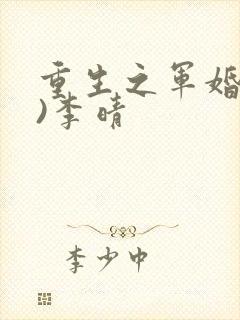 重生之军婚
)李晴
李少中